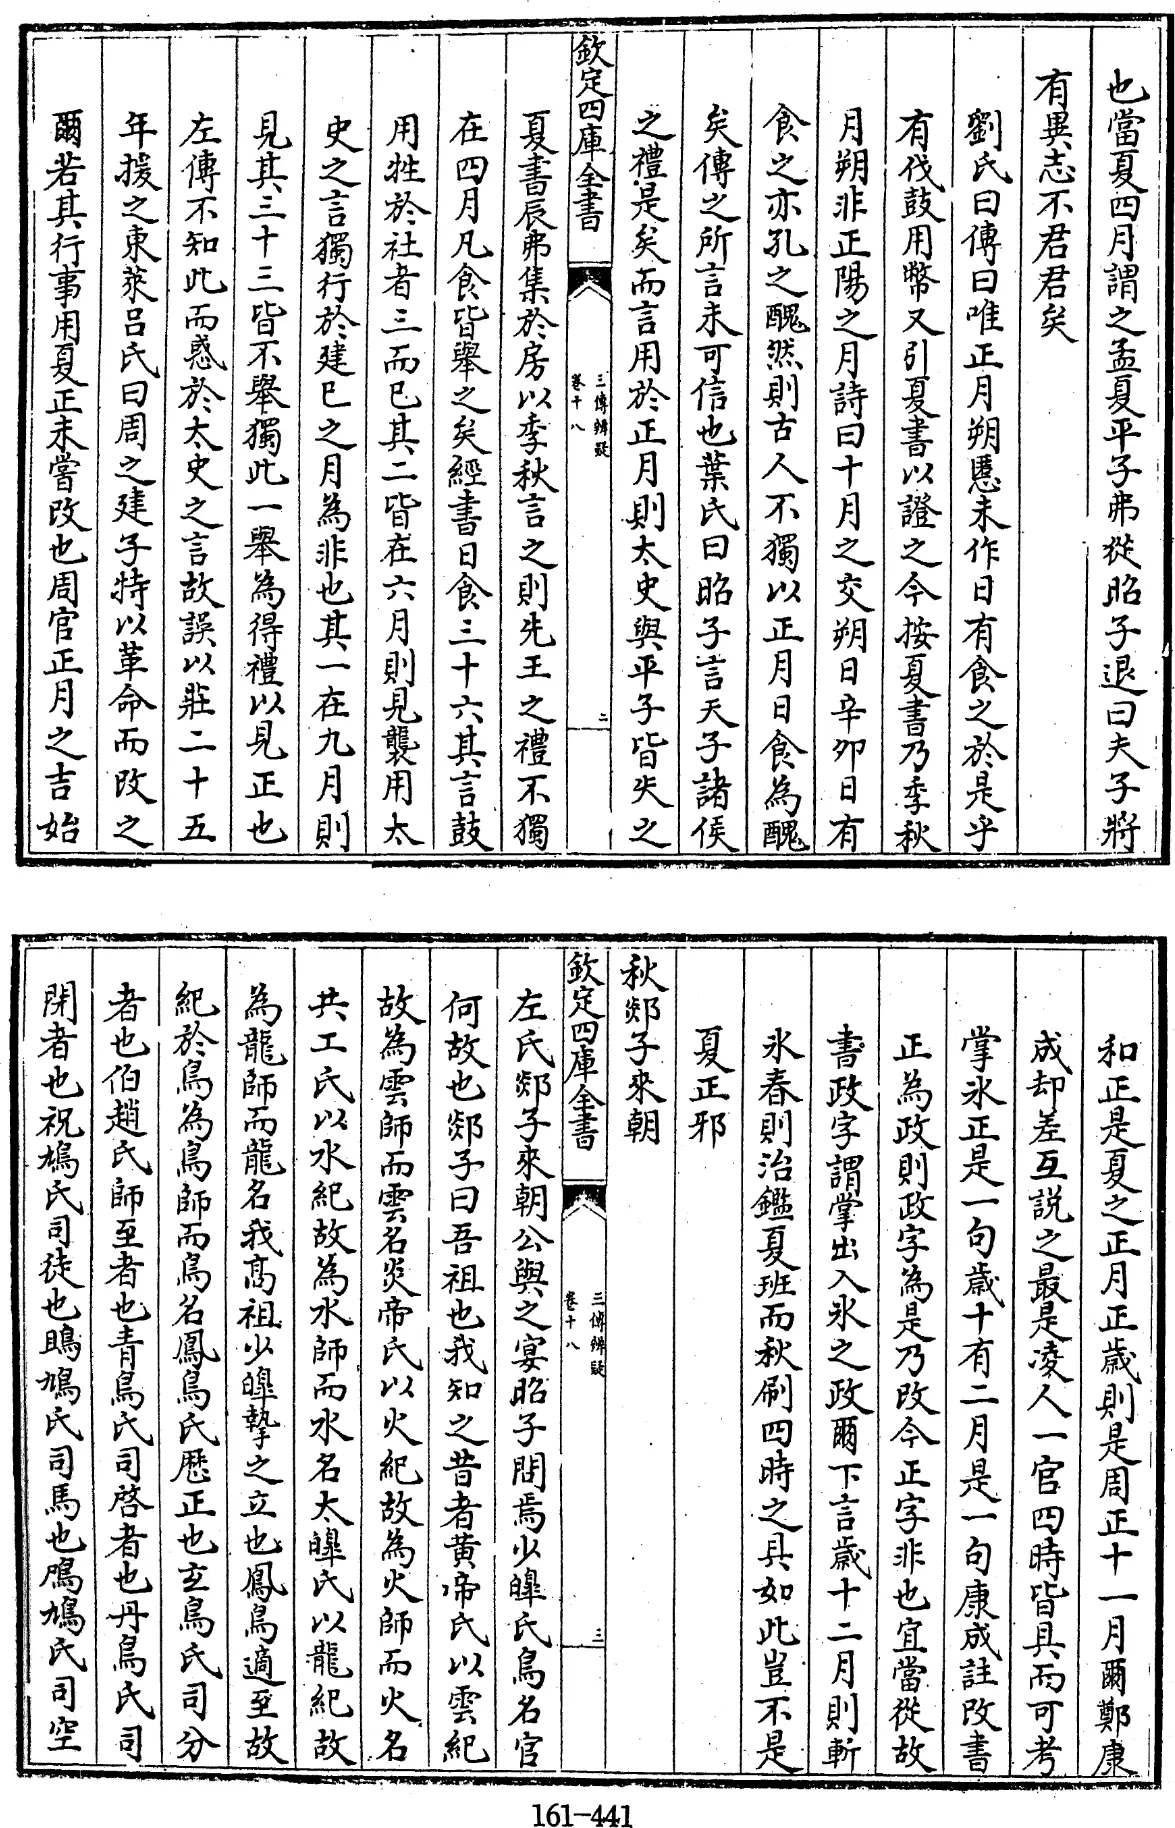 也當夏四月謂之孟夏平子弗從昭子退曰夫子將
有異志不君君矣
劉氏曰傳曰唯正月朔慝未作日有食之於是乎
有伐鼓用幣又引夏書以證之今按夏書乃季秋
月朔非正陽之月詩曰十月之交朔日辛卯日有
食之亦孔之醜然則古人不獨以正月日食為醜
矣傳之所言未可信也葉氏曰昭子言天子諸侯
之禮是矣而言用於正月則太史與平子皆失之
欽定四庫全書
三傳辨疑
卷十八
二
夏書辰弗集於房以季秋言之則先王之禮不獨
在四月凡食皆舉之矣經書日食三十六其言鼓
用牲於社者三而已其二皆在六月則見襲用太
史之言獨行於建巳之月為非也其一在九月則
見其三十三皆不舉獨此一舉為得禮以見正也
左傳不知此而惑於太史之言故誤以莊二十五
年援之東萊呂氏曰周之建子特以革命而改之
爾若其行事用夏正未嘗改也周官正月之吉始
和正是夏之正月正歲則是周正十一月爾鄭康
成却差互説之最是凌人一官四時皆具而可考
掌氷正是一句歲十有二月是一句康成註改書
正為政則政字為是乃改今正字非也宜當從故
書政字謂掌出入氷之政爾下言歲十二月則斬
氷春則治鑑夏班而秋刷四時之具如此豈不是
夏正邪
秋郯子來朝
欽定四庫全書
三傳辨疑
卷十八
三
左氏郯子來朝公與之宴昭子問焉少皥氏鳥名官
何故也郯子曰吾祖也我知之昔者黃帝氏以雲紀
故為雲師而雲名炎帝氏以火紀故為火師而火名
共工氏以水紀故為水師而水名太皥氏以龍紀故
為龍師而龍名我高祖少皥摯之立也鳳鳥適至故
紀於鳥為鳥師而鳥名鳳鳥氏歷正也玄鳥氏司分
者也伯趙氏師至者也青鳥氏司啓者也丹鳥氏司
閉者也祝鳩氏司徒也鴡鳩氏司馬也鳲鳩氏司空
161-441